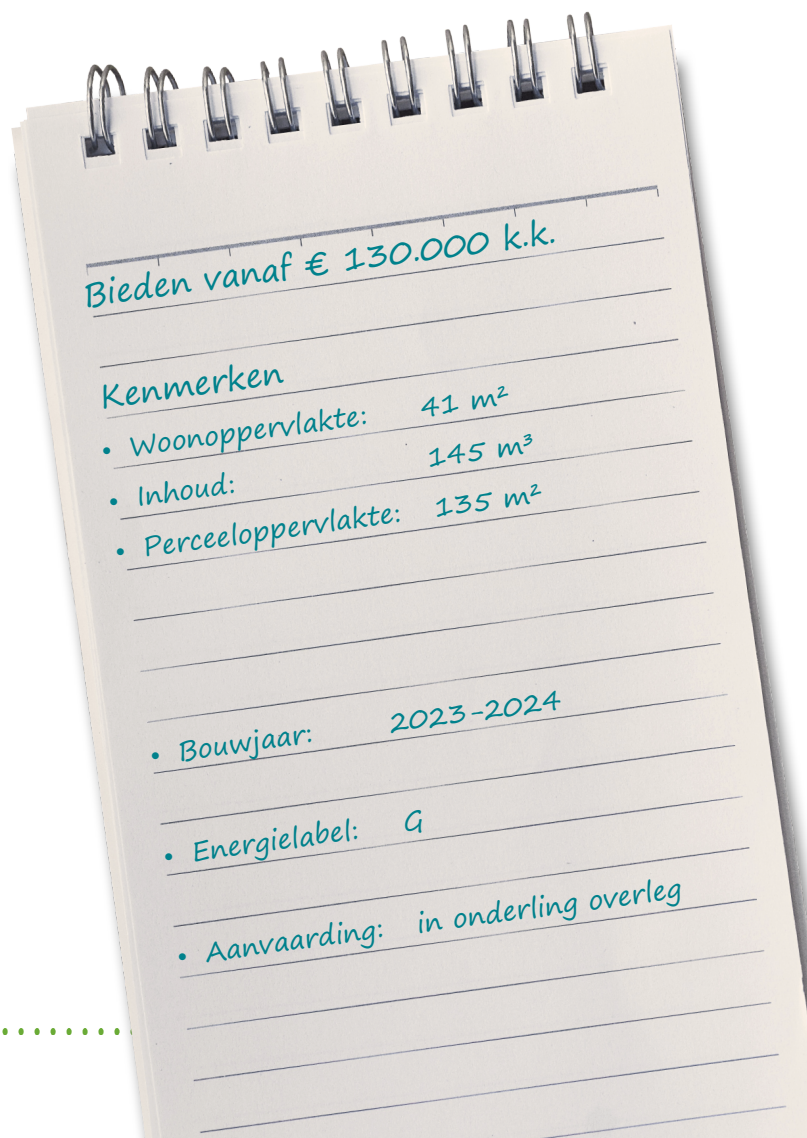 Bieden vanaf € 130.000 k.k.
Kenmerken
• Woonoppervlakte: 41 m²
• Inhoud: 145 m³
• Perceeloppervlakte: 135 m²
• Bouwjaar: 2023-2024
• Energielabel: G
• Aanvaarding: in onderling overleg